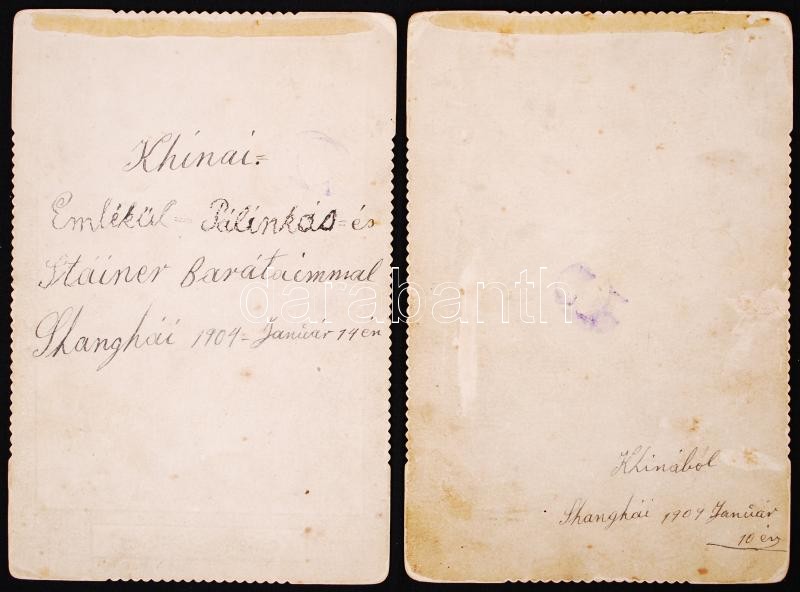 Khinai=
Emlékül= Pálinkás=és
Stáiner Barátaimmal
Shanghái 1904= Január 14én
darabanth
Khinából
Shanghái 1904 Január
10 én